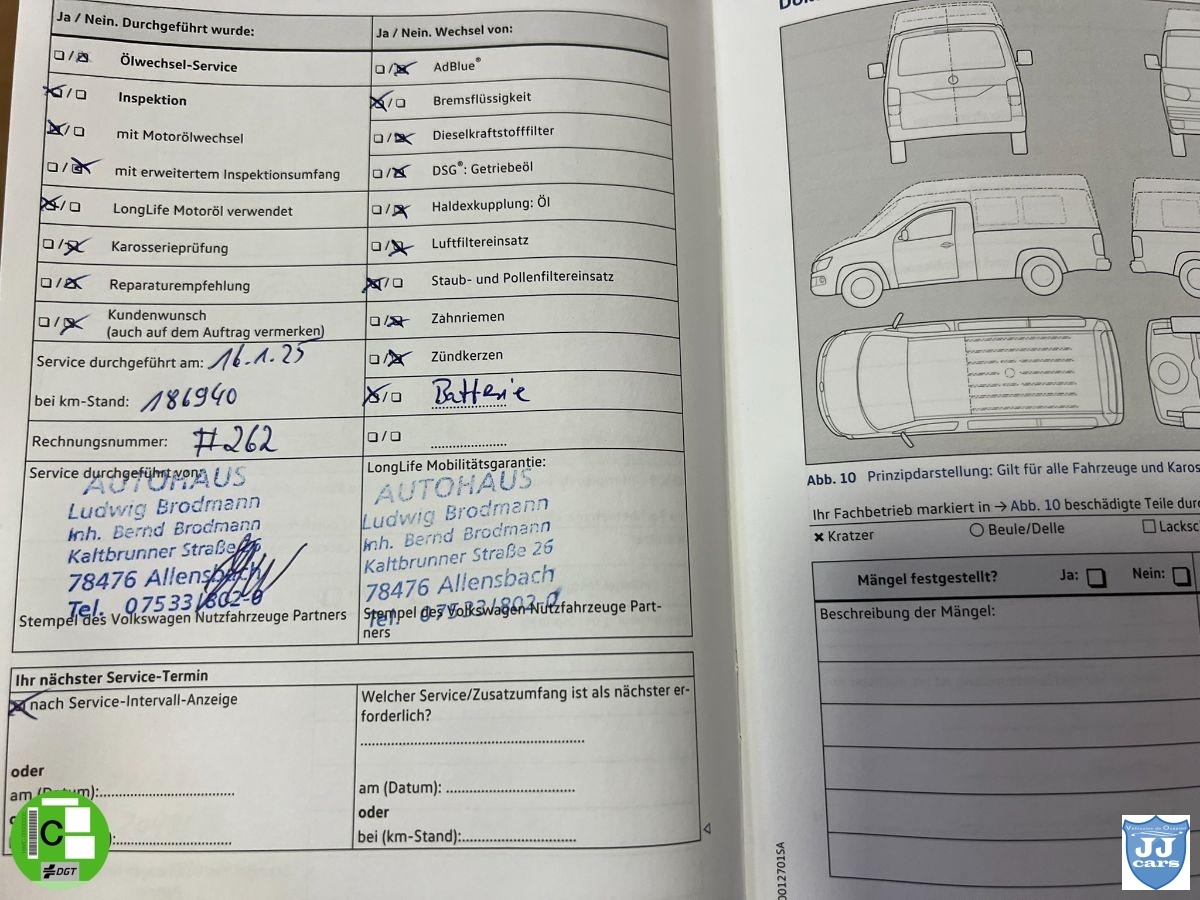 Ja / Nein. Durchgeführt wurde:
Ölwechsel-Service
Inspektion
mit Motorölwechsel
mit erweitertem Inspektionsumfang
LongLife Motoröl verwendet
Karosserieprüfung
Reparaturempfehlung
Kundenwunsch
(auch auf dem Auftrag vermerken)
Service durchgeführt am: 16.1.25
bei km-Stand: 186940
Rechnungsnummer: #262
Service durchgeführt von:
AUTOHAUS
Ludwig Brodmann
Inh. Bernd Brodmann
Kaltbrunner Straße 26
78476 Allensbach
Tel. 07533/802-0
Stempel des Volkswagen Nutzfahrzeuge Partners
Ja / Nein. Wechsel von:
AdBlue®
Bremsflüssigkeit
Dieselkraftstofffilter
DSG®: Getriebeöl
Haldexkupplung: Öl
Luftfiltereinsatz
Staub- und Pollenfiltereinsatz
Zahnriemen
Zündkerzen
Batterie
LongLife Mobilitätsgarantie:
AUTOHAUS
Ludwig Brodmann
Inh. Bernd Brodmann
Kaltbrunner Straße 26
78476 Allensbach
Tel. 07533/802-0
Stempel des Volkswagen Nutzfahrzeuge Part-
ners
Ihr nächster Service-Termin
nach Service-Intervall-Anzeige
oder
am (Datum):
Welcher Service/Zusatzumfang ist als nächster er-
forderlich?
am (Datum):
oder
bei (km-Stand):
Abb. 10 Prinzipdarstellung: Gilt für alle Fahrzeuge und
Ihr Fachbetrieb markiert in → Abb. 10 beschädigte Teile
× Kratzer
Beule/Delle
Mängel festgestellt? Ja: Nein:
Beschreibung der Mängel:
C
DGT
JJ
cars